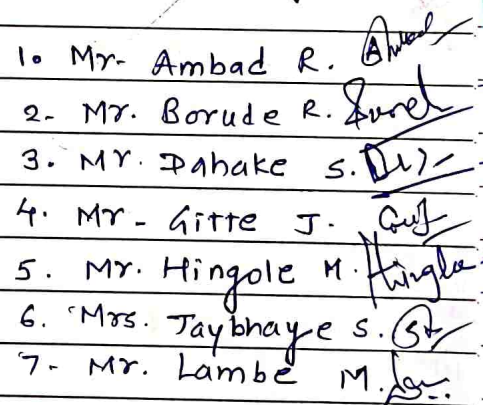 1. Mr- Ambad R.
2- Mr. Borude R.
3. Mr. Dahake S.
4. Mr- Gitte J.
5. Mr. Hingole M.
6. Mrs. Jaybhaye S.
7- Mr. Lambe M.